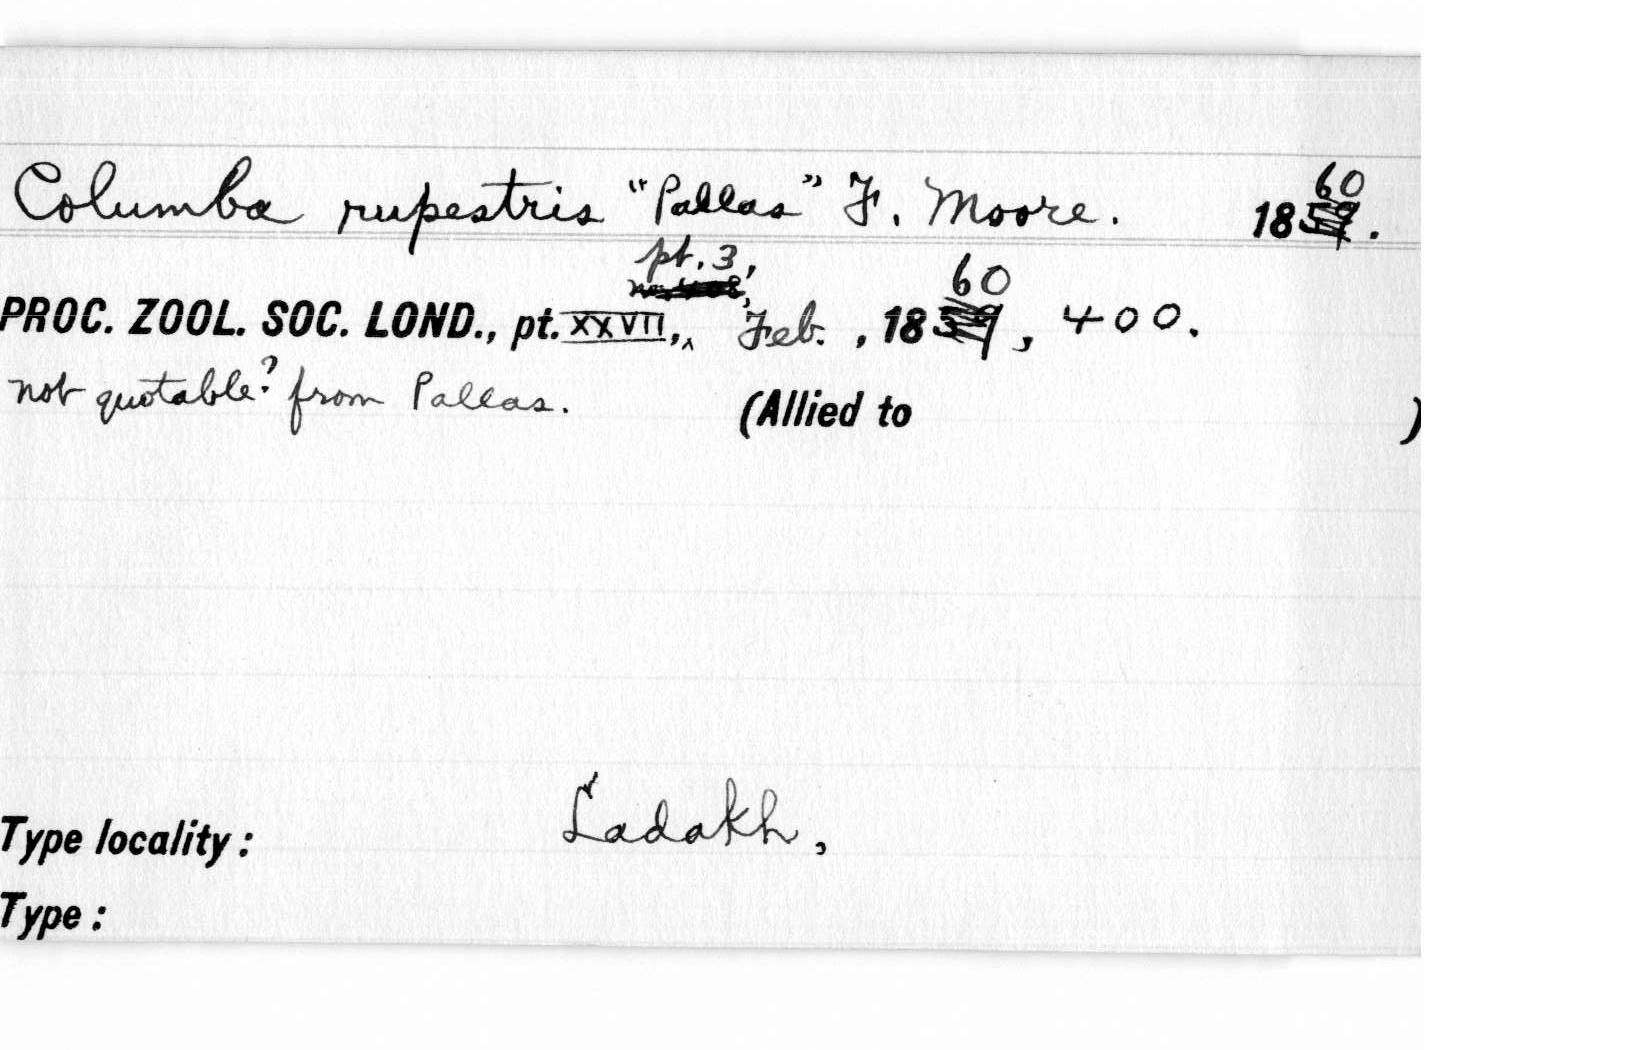 Columba rupestris "Pallas" F. Moore. 1860.
pt. 3,
PROC. ZOOL. SOC. LOND., pt. XXVII, ‸ Feb. , 1860, 400.
not quotable? from Pallas. (Allied to )
Type locality: Ladakh,
Type: